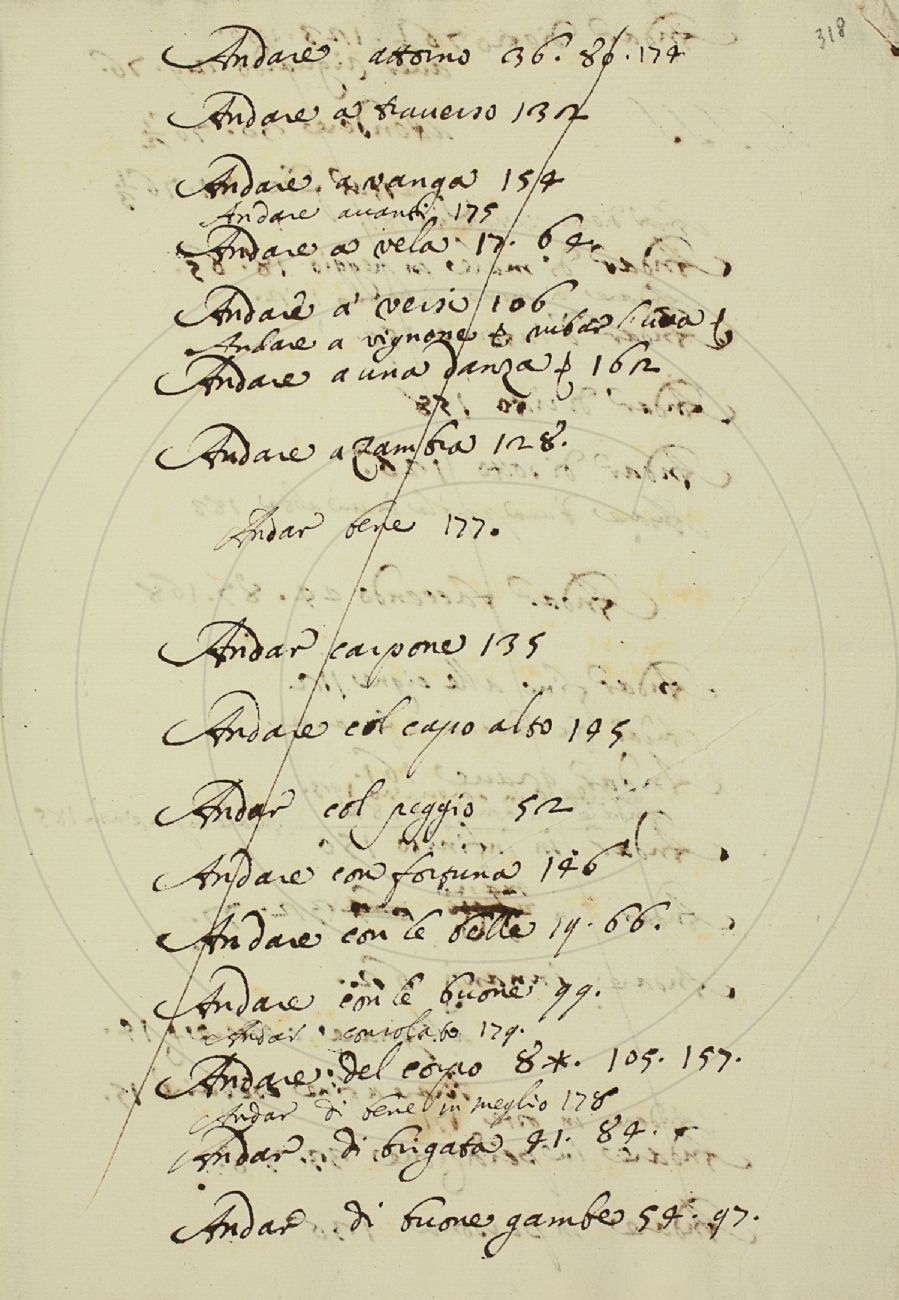 318
Andare attorno 36. 86. 174
Andare à trauerso 132
Andare a vanga 154
Andare auanti 175
Andare a vela 17. 64.
Andare a' versi 106
Andare a vignone
Andare a una danza 162
Andare a Zambra 128.
Andar bene 177.
Andar carpone 135
Andare col capo alto 145
Andar col peggio 52
Andare con fortuna 146
Andare con le belle 19. 66.
Andare con le buone 99.
Andar consolato 179.
Andare del corpo 8*. 105. 157.
Andar di bene in meglio 178
Andar di brigata 41. 84.
Andar di buone gambe 54. 97.